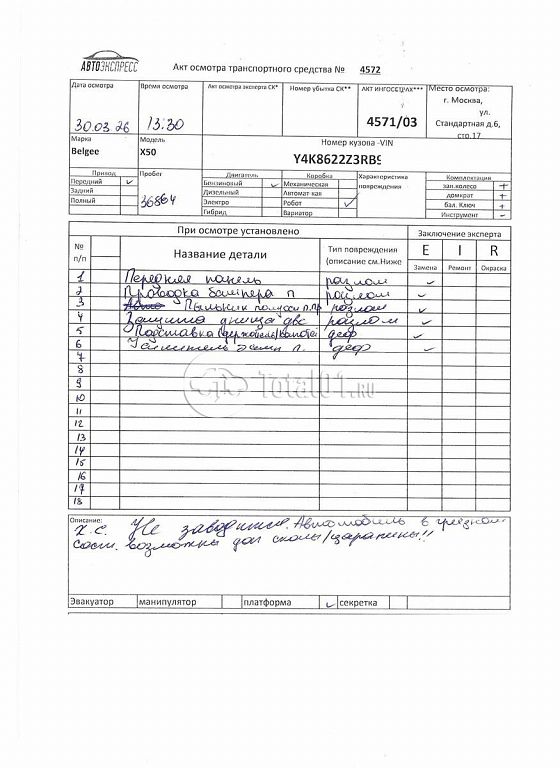 АВТОЭКСПРЕСС
Акт осмотра транспортного средства № 4572
Дата осмотра Время осмотра Акт осмотра эксперта СК* Номер убытка СК** АКТ ИНГОССТРАХ*** Место осмотра:
30.03.26 13:30 4571/03 г. Москва,
ул.
Стандартная д.6,
стр.17
Марка Модель Номер кузова -VIN
Belgee X50 Y4K8622Z3RB9
Привод Пробег Двигатель Коробка Характеристика повреждения Комплектация
Передний ✓ 36864 Бензиновый ✓ Механическая зап.колесо +
Задний Дизельный Автомат кая домкрат +
Полный Электро Робот ✓ бал. Ключ +
Гибрид Вариатор Инструмент -
При осмотре установлено Заключение эксперта
№ п/п Название детали Тип повреждения (описание см.Ниже E I R
Замена Ремонт Окраска
1 Передняя панель разлом ✓
2 Проводка бампера п разлом ✓
3 Пыльник полуоси п.пр разлом ✓
4 Защита днища двс разлом ✓
5 Подставка (держатель) деф ✓
6 Усилитель п. деф ✓
7
8
9
10
11
12
13
14
15
16
17
18
Total01.ru
Описание:
Х.С. Не заводится. Автомобиль в грязном
сост. возможны доп сколы/царапины!!
Эвакуатор манипулятор платформа ✓ секретка